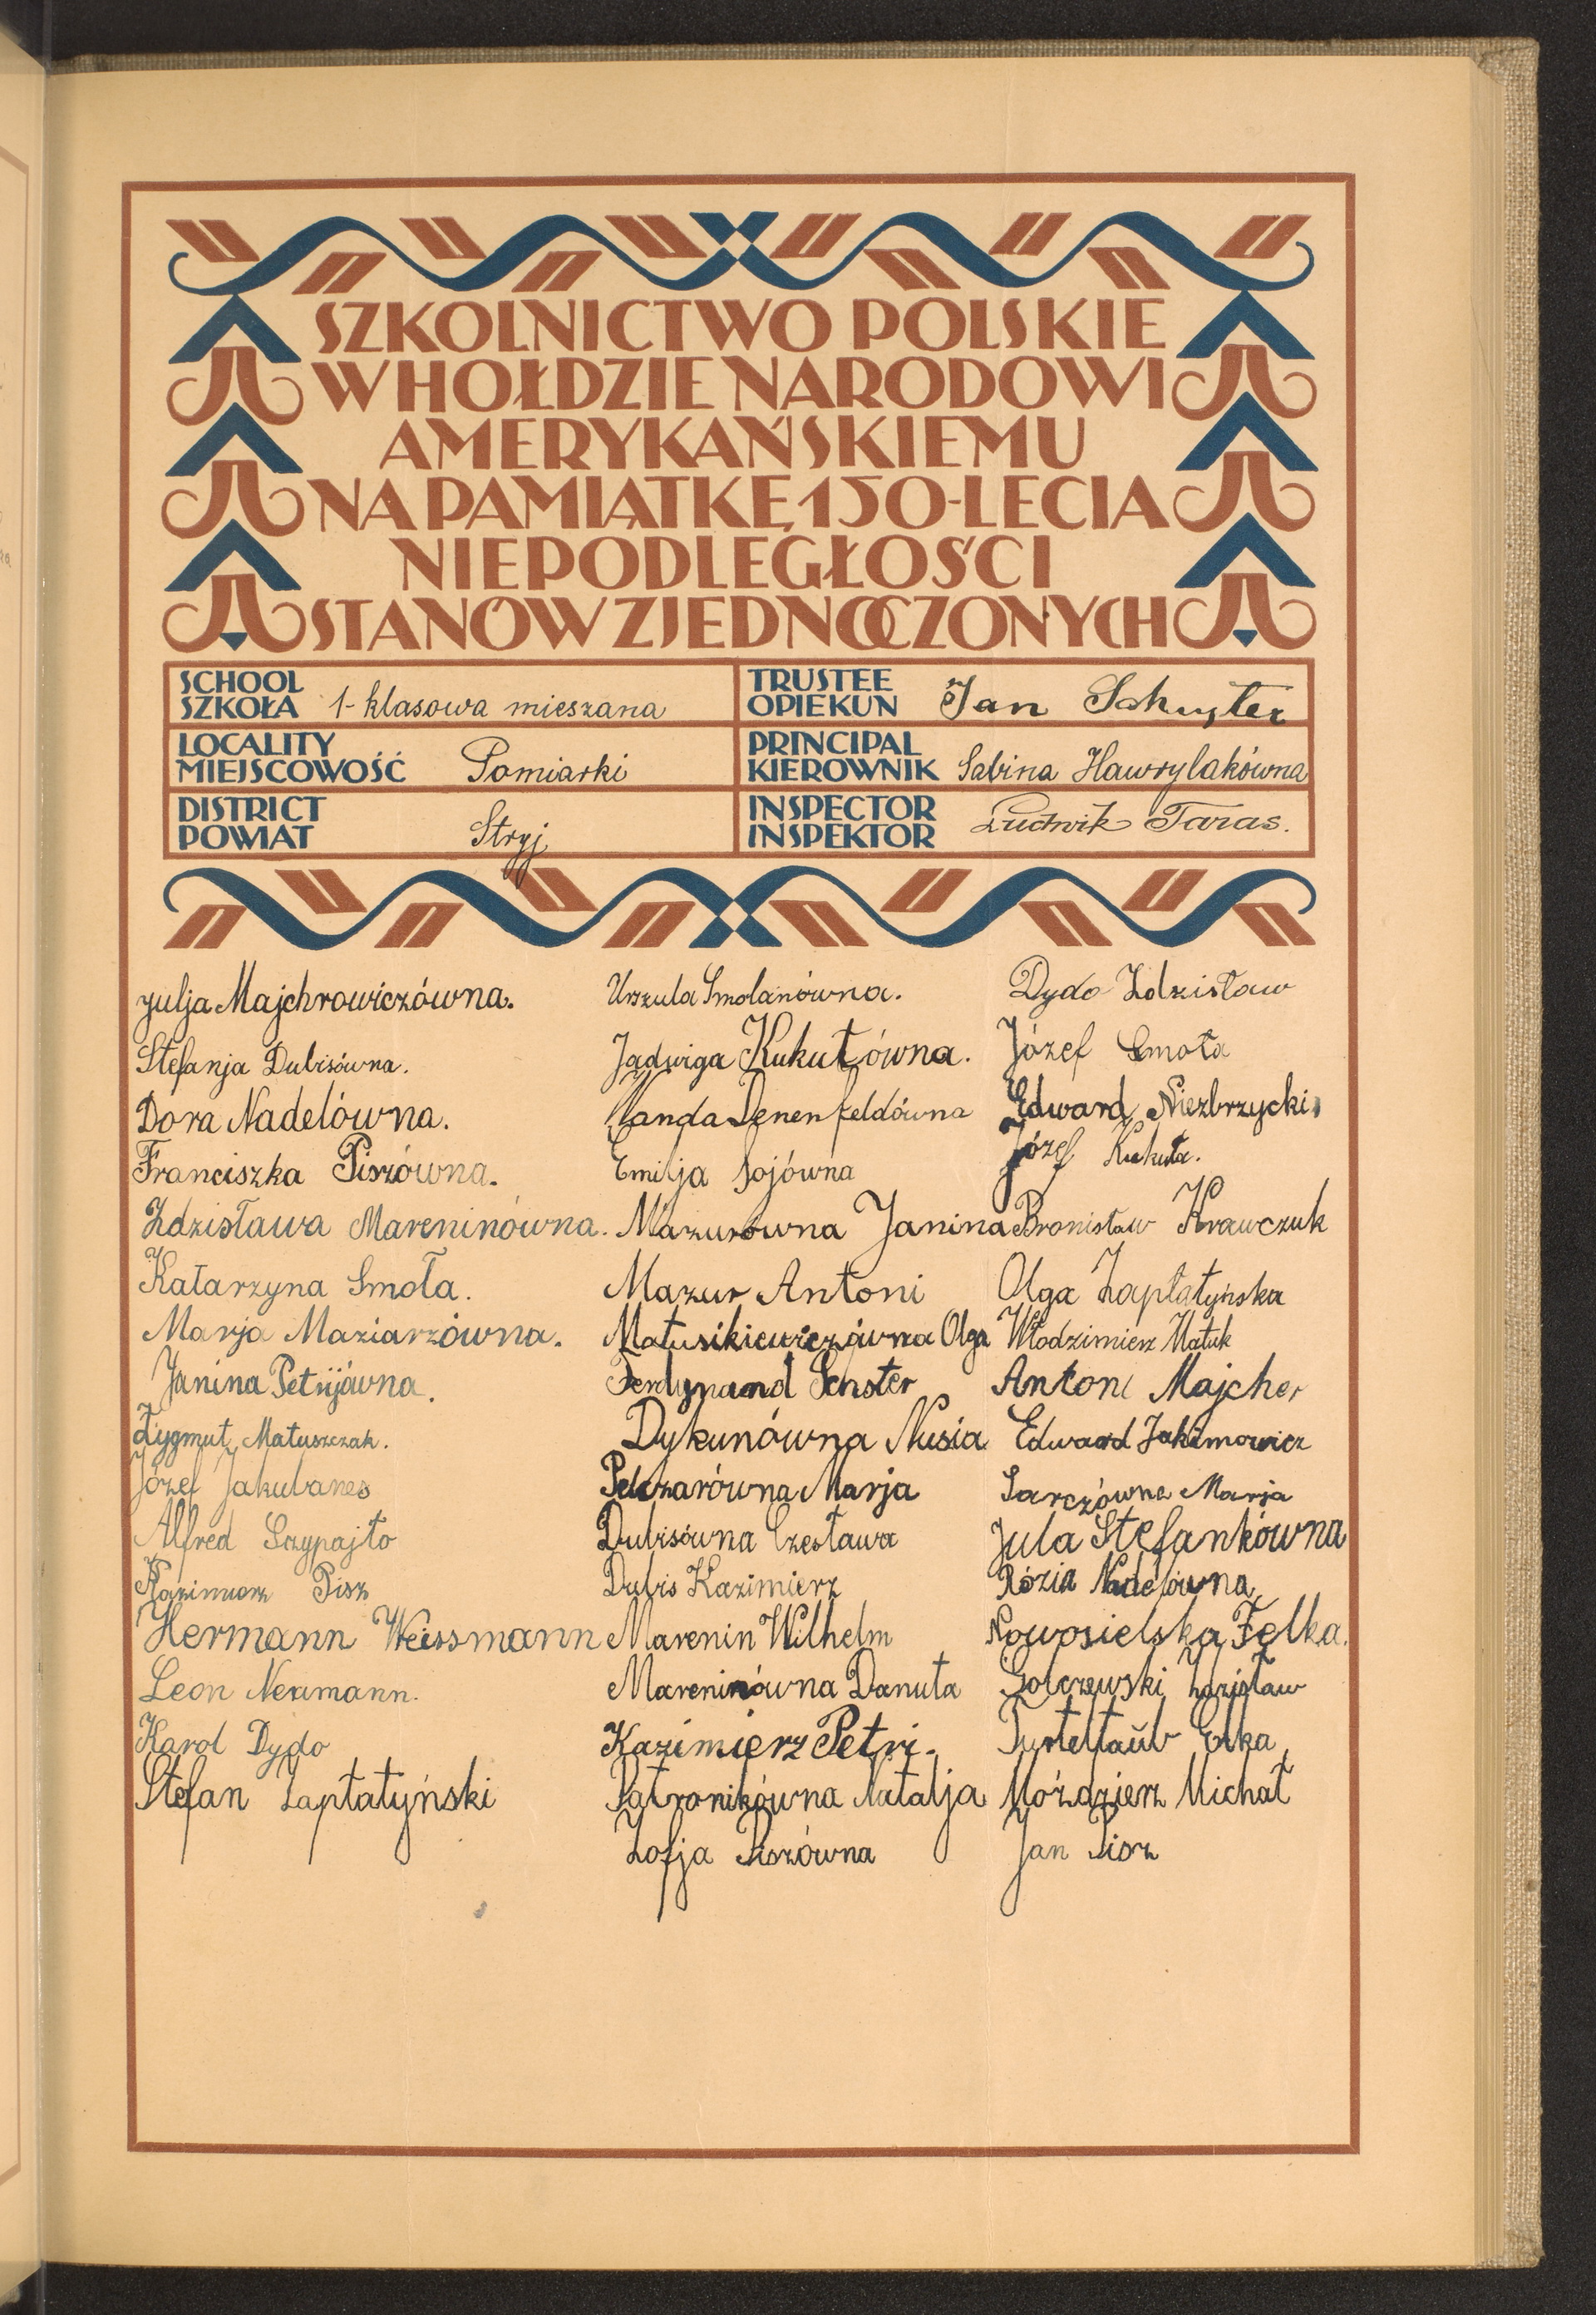 SZKOLNICTWO POLSKIE
W HOŁDZIE NARODOWI
AMERYKAŃSKIEMU
NA PAMIĄTKĘ 150-LECIA
NIEPODLEGŁOŚCI
STANÓW ZJEDNOCZONYCH
SCHOOL
SZKOŁA 1-klasowa mieszana
TRUSTEE
OPIEKUN Jan Schuster
LOCALITY
MIEJSCOWOŚĆ Pomiarki
PRINCIPAL
KIEROWNIK Sabina Hawrylakówna
DISTRICT
POWIAT Stryj
INSPECTOR
INSPEKTOR Ludwik Taras.
Julja Majchrowiczówna.
Stefanja Dubisówna.
Dora Nadelówna.
Franciszka Piszówna.
Zdzisława Mareninówna.
Katarzyna Smoła.
Marja Maziarzówna.
Janina Petrijówna.
Zygmut Matuszczak.
Józef Jakubanes
Alfred Szypajto
Kazimierz Pisz
Hermann Weissmann
Leon Neumann.
Karol Dydo
Stefan Łapłatyński
Urszula Smolanówna.
Jadwiga Kukutówna.
Wanda Lenenfeldówna
Emilja Sojówna
Mazurówna Janina
Mazur Antoni
Matusikiewiczówna Olga
Ferdynand Schster
Dykunówna Nusia
Pelczarówna Marja
Dubisówna Czesława
Dubis Kazimierz
Marenin Wilhelm
Mareninówna Danuta
Kazimierz Petri.
Patronikówna Natalja
Zofja Piszówna
Dydo Zdzisław
Józef Smoła
Edward Niezbrzycki
Józef Kukuła.
Bronisław Krawczuk
Olga Łapłatyńska
Włodzimierz Matuk
Antoni Majcher
Edward Jakimowicz
Sarczówna Marja
Jula Stefankówna
Rózia Nadelówna
Nowosielska Felka.
Golczewski Zdzisław
Turteltaub Elka
Moździerz Michał
Jan Pisz